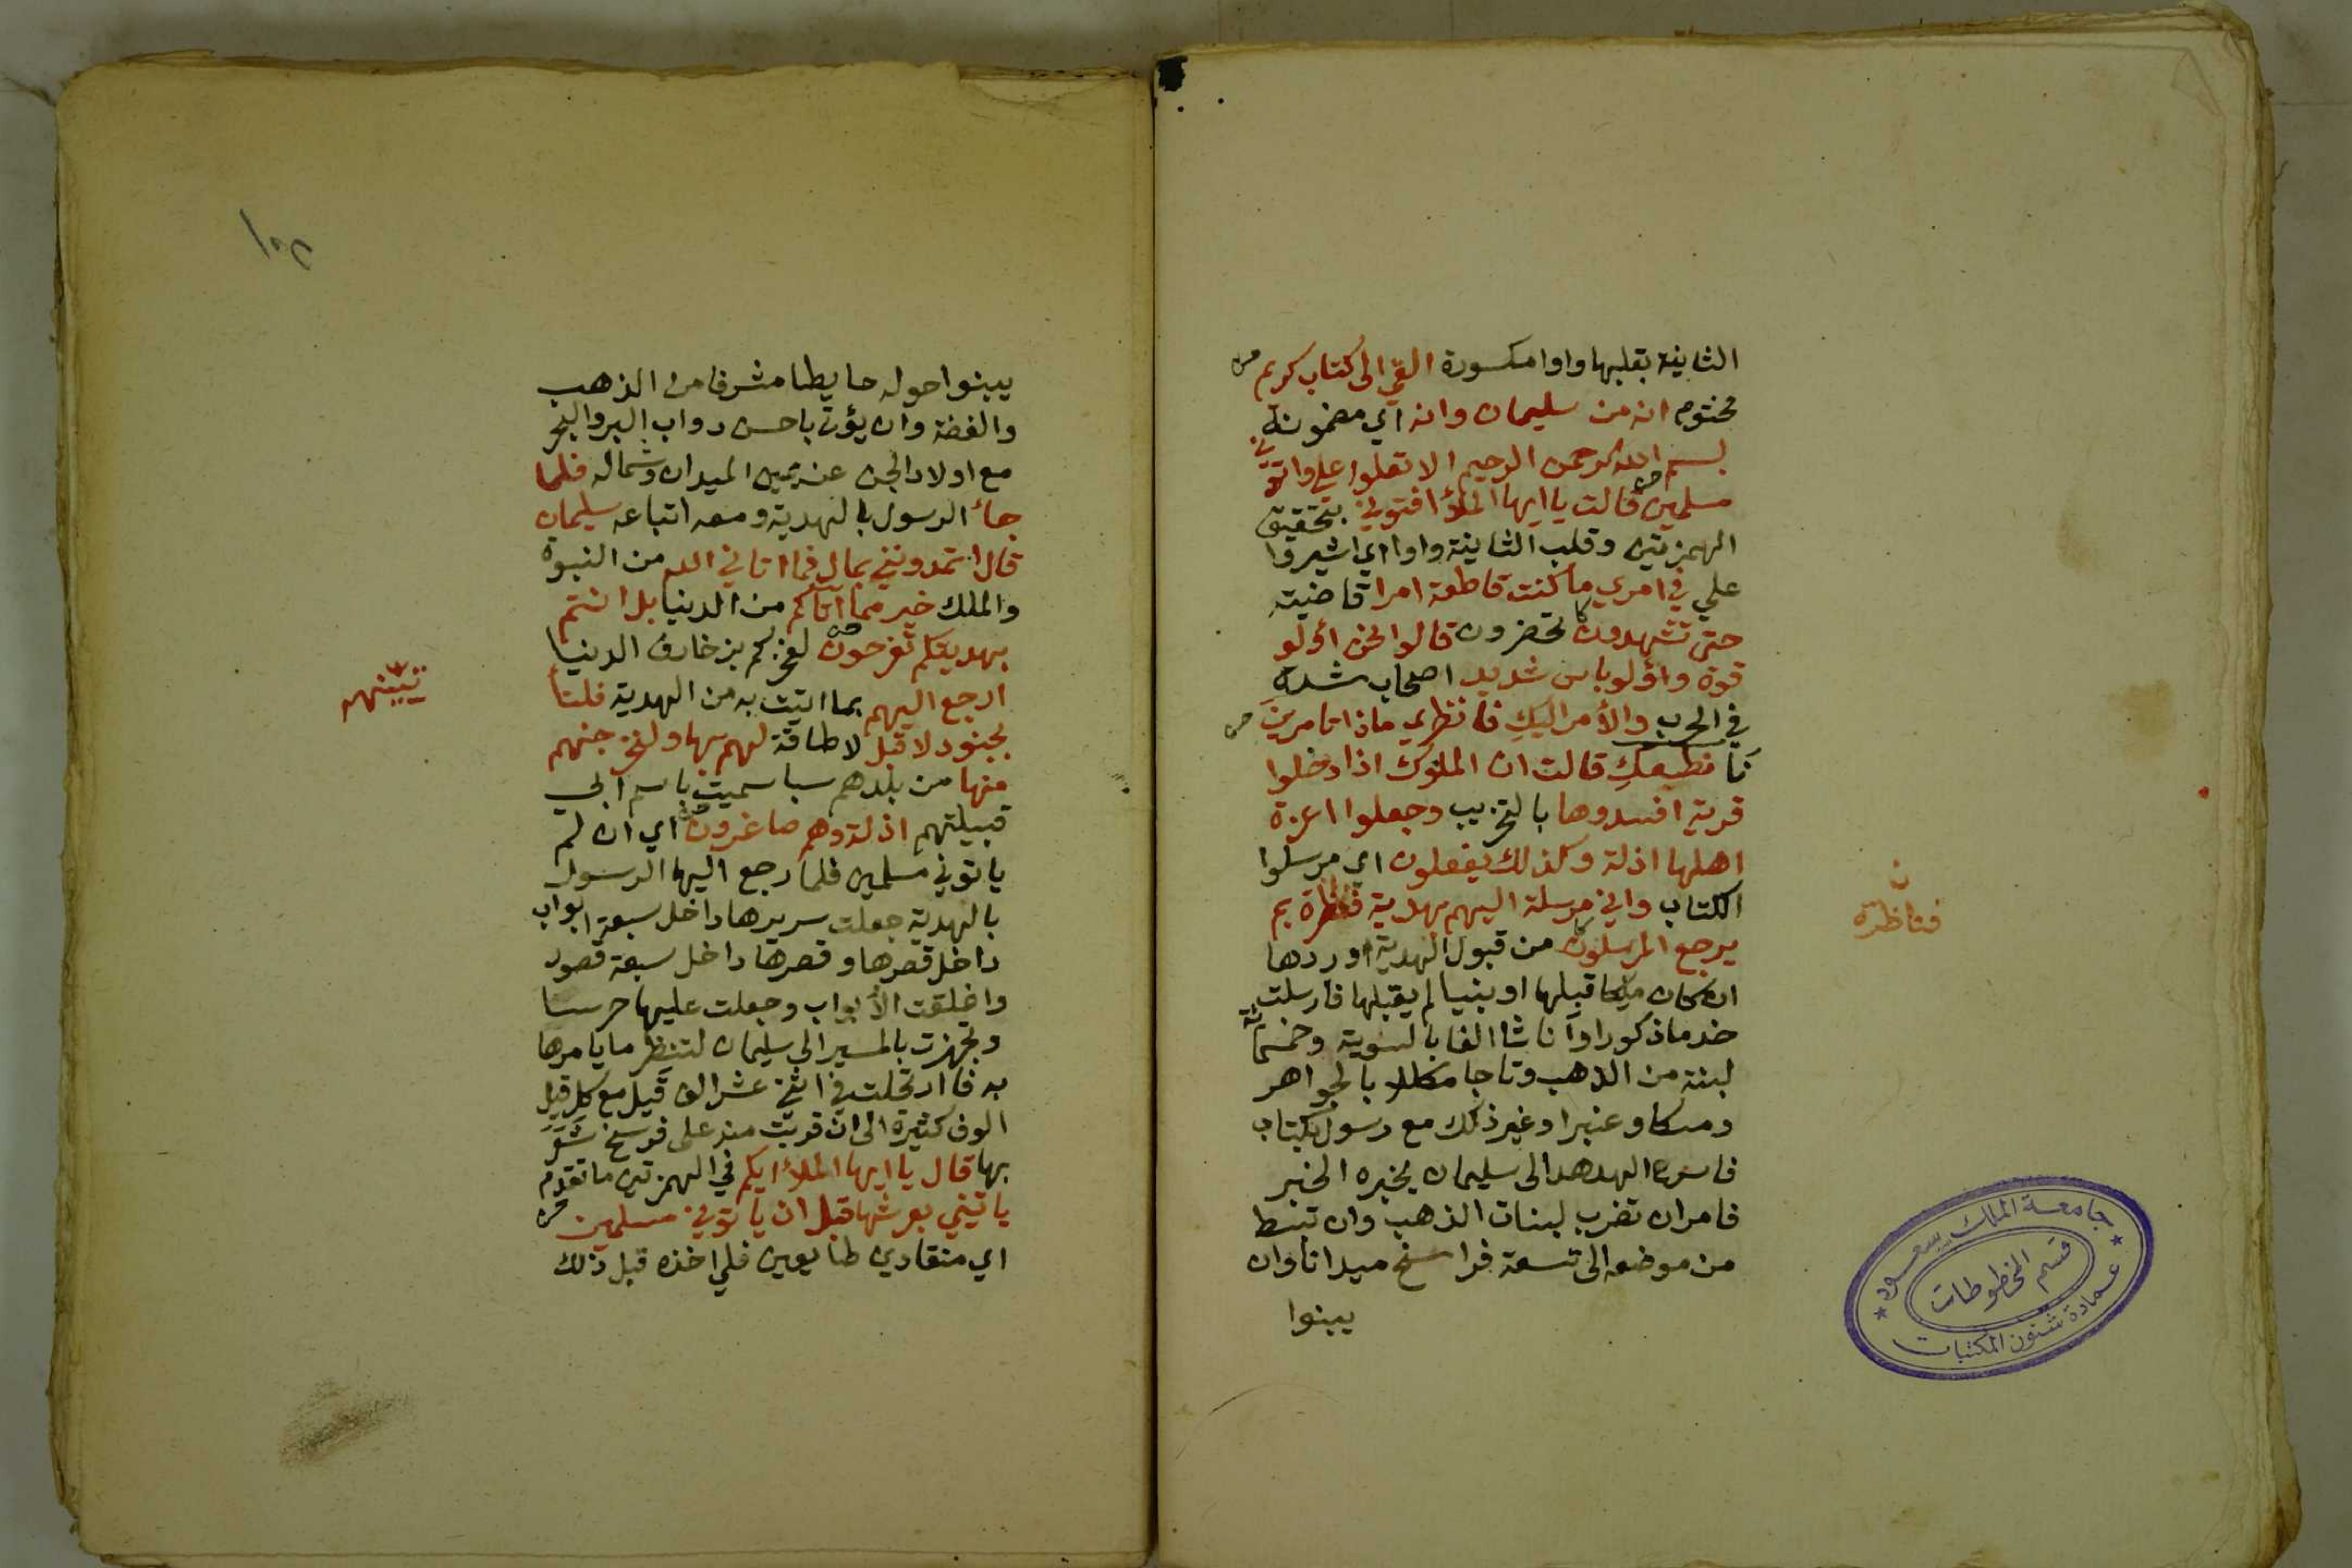 الثانية بقلبها واوا مكسورة القي الى كتاب كريم
مختوم انه من سليمان وانه اي مضمونه
بسم الله الرحمن الرحيم الا تعلوا علي واتوني
مسلمين قالت يا ايها الملؤ افتوني بتحقيق
الهمزتين وقلب الثانية واوا اي اشيروا
علي في امري ما كنت قاطعة امرا قاضيته
حتى تشهدون تحضرون قالوا نحن اولو
قوة واولو باس شديد اصحاب شدة
في الحرب والأمر اليكِ فانظري ماذا تامرينَ
نا نطيعكِ قالت ان الملوك اذا دخلوا
قرية افسدوها بالتخريب وجعلوا اعزة
اهلها اذلة وكذلك يفعلون اي مرسلوا
الكتاب واني مرسلة اليهم بهدية فناظرة بم
يرجع المرسلون من قبول الهدية او ردها
ان كان ملكا قبلها او نبيا لم يقبلها فارسلت
خدما ذكورا واناثا الفا بالسوية وخمسمائة
لبنة من الذهب وتاجا مكللا بالجواهر
ومسكا وعنبرا وغير ذلك مع رسول بكتاب
فاسرع الهدهد الى سليمان يخبره الخبر
فامر ان تضرب لبنات الذهب وان تبسط
من موضعه الى تسعة فراسخ ميدانا وان
يبنوا
ن
فناظرة
جامعة الملك سعود
قسم المخطوطات
عمادة شئون المكتبات
يبنوا حوله حايطا مشرفا من الذهب
والفضة وان يؤتى باحسن دواب البر والبحر
مع اولاد الجن عن يمين الميدان وشماله فلما
جاء الرسول بالهدية ومعه اتباعه سليمان
قال اتمدونني بمال فما اتاني الله من النبوة
والملك خير مما اتاكم من الدنيا بل انتم
بهديتكم تفرحون لفخركم بزخارف الدنيا
ارجع اليهم بما اتيت به من الهدية فلنا
بجنود لا قبل لا طاقة لهم بها ولنخرجنهم
منها من بلدهم سبا سميت باسم ابي
قبيلتهم اذلة وهم صاغرون اي ان لم
ياتوني مسلمين فلما رجع اليها الرسول
بالهدية جعلت سريرها داخل سبعة ابواب
داخل قصرها وقصرها داخل سبعة قصور
واغلقت الأبواب وجعلت عليها حرسا
وتجهزت بالمسير الى سليمان لتنظر ما يامرها
به فارتحلت في اثني عشر الف قيل مع كل قيل
الوف كثيرة الى ان قربت منه على فرسخ شعر
بها قال يا ايها الملؤ ايكم في الهمزتين ما تقدم
ياتيني بعرشها قبل ان ياتوني مسلمين
اي منقادين طايعين فلي اخذه قبل ذلك